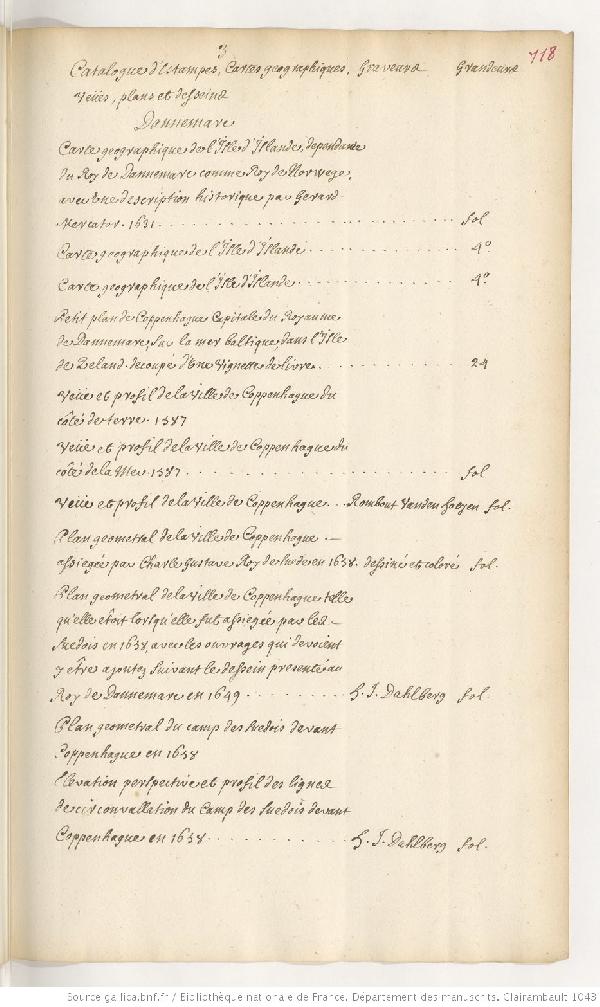 3
718
Catalogue d'Estampes, Cartes geographiques, Graveurs Grandeurs
Veües, plans et desseins
Dannemarc
Carte geographique de l'Isle d'Islande, dependante
du Roy de Dannemarc comme Roy de Norwege,
avec une description historique par Gerard
Mercator. 1631 . . . . . . . . . . fol
Carte geographique de l'Isle d'Islande . . . . . . . . . . 4°
Carte geographique de l'Isle d'Islande . . . . . . . . . . 4°
Petit plan de Coppenhague Capitale du Royaume
de Dannemarc, sur la mer baltique, dans l'Isle
de Zeland découpé d'une Vignette de livre . . . . . . . . . . 24
Veüe et profil de la Ville de Coppenhague du
côté de terre. 1587
Veüe et profil de la Ville de Coppenhague du
côté de la Mer. 1587 . . . . . . . . . . fol
Veüe et profil de la Ville de Coppenhague . . . Rombout Vanden hoeyen fol.
Plan geometral de la Ville de Coppenhague . —
assiegée par Charle Gustave Roy de suede en 1658. dessiné et coloré fol.
Plan geometral de la Ville de Coppenhague telle
qu'elle êtoit lorsqu'elle fut assiegée par les —
suedois en 1658, avec les ouvrages qui devoient
y être ajoutez suivant le dessein presenté au
Roy de Dannemarc en 1649 . . . . . . . . E. J. Dahlberg fol.
Plan geometral du camp des suedois devant
Coppenhague en 1658
Elevation perspective et profil des lignes
de circonvallation du Camp des suedois devant
Coppenhague en 1658 . . . . . . . . . . E. J. Dahlberg fol.
Source gallica.bnf.fr / Bibliothèque nationale de France. Département des manuscrits. Clairambault 1043